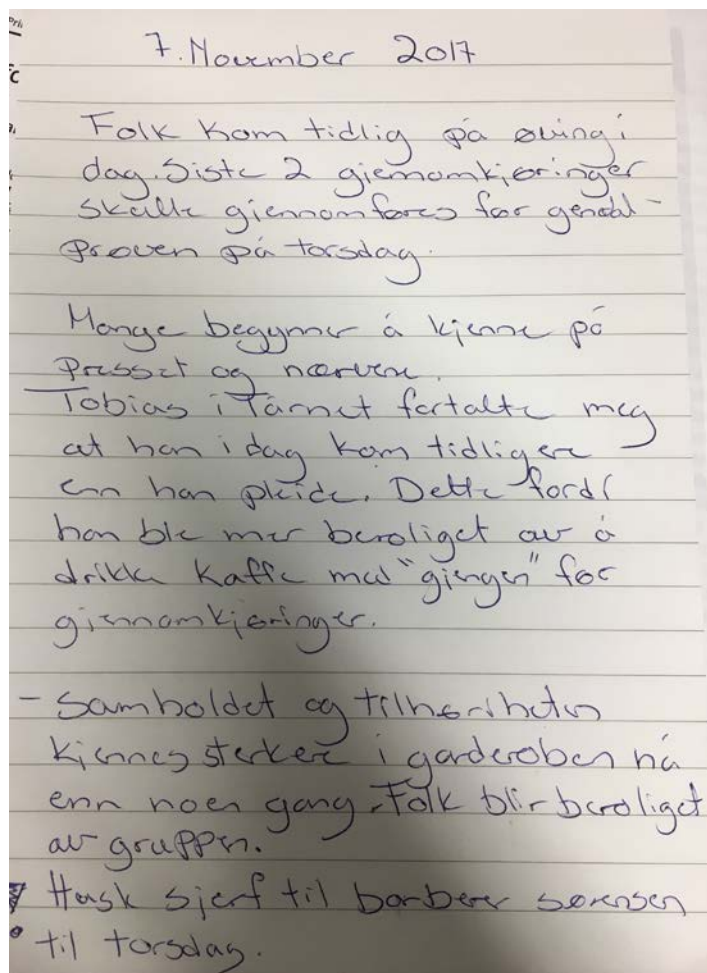 7. November 2017
Folk kom tidlig på øving i
dag. Siste 2 giemomkjøringer
skulle giennomføres før genoral-
prøven på torsdag.
Mange begynner å kjenne på
presset og nærvene.
Tobias i Tårnet fortalte meg
at han i dag kom tidligere
enn han pleide. Dette fordi
han ble mer beroliget av å
drikke kaffe med "giengen" før
giennomkjøringer.
- Samholdet og tilhørigheten
kjennes sterkere i garderoben nå
enn noen gang. Folk blir beroliget
av gruppen.
Husk skjerf til barberer sørensen
til torsdag.